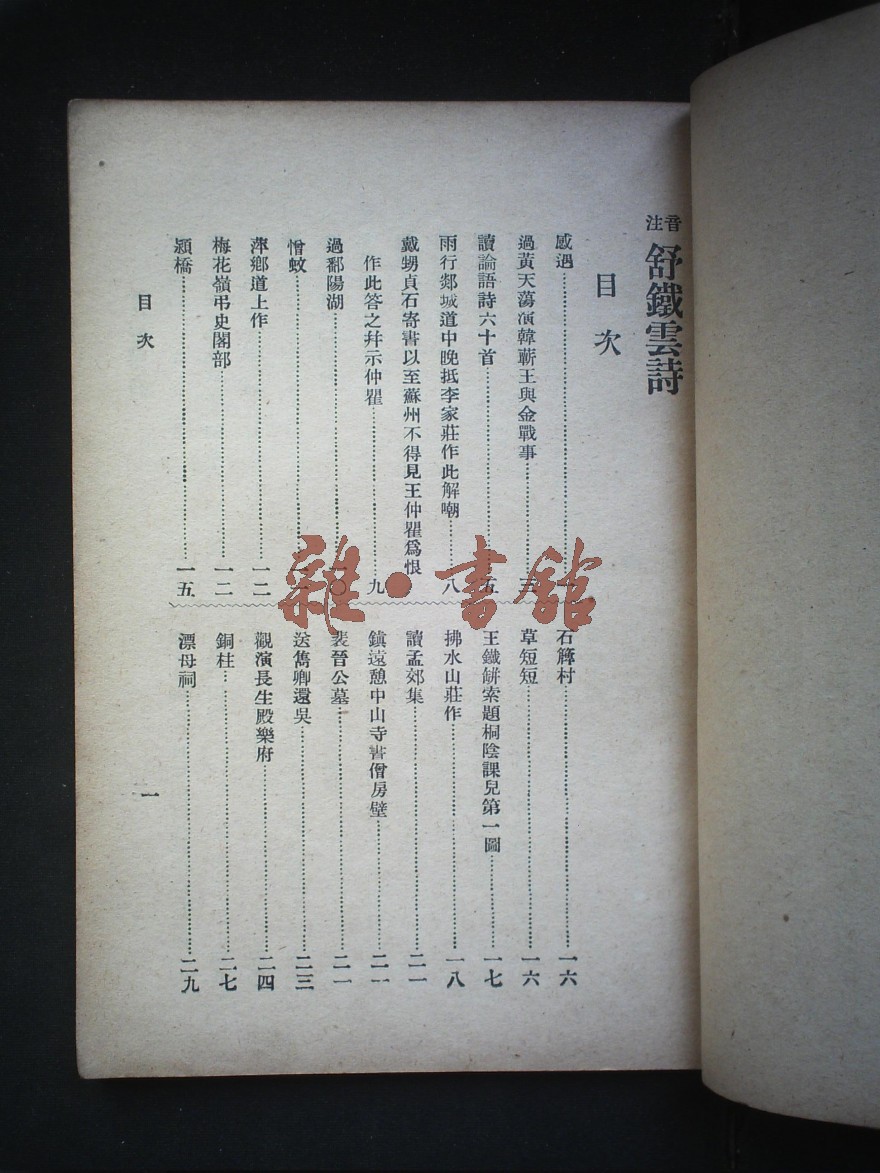 音注
舒鐵雲詩
目次
感遇……一
過黃天蕩演韓蘄王與金戰事……三
讀論語詩六十首……五
雨行郯城道中晚抵李家莊作此解嘲……八
戴甥貞石寄書以至蘇州不得見王仲瞿爲恨
作此答之幷示仲瞿……九
過鄱陽湖……一〇
憎蚊……
萍鄉道上作……一二
梅花嶺弔史閣部……一二
潁橋……一五
石籜村……一六
草短短……一六
王鐵餠索題桐陰課兒第一圖……一七
拂水山莊作……一八
讀孟郊集……二一
鎭遠憩中山寺書僧房壁……二一
裴晉公墓……二一
送雋卿還吳……二三
觀演長生殿樂府……二四
銅柱……二七
漂母祠……二九
目次
一
雜·書館